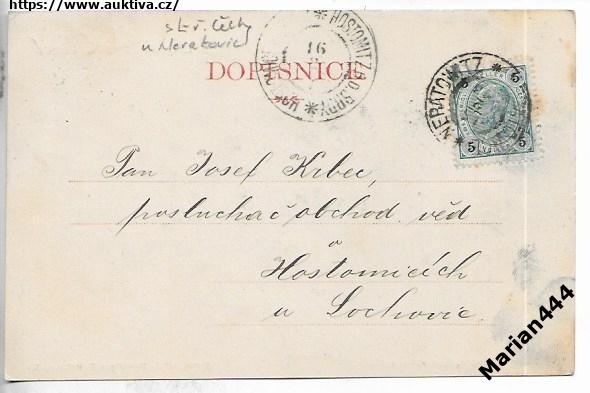 https://www.auktiva.cz/
stř. Čechy
u Neratovic
DOPISNICE
HOSTOMITZ
16
NERATOWITZ
5 5
5 5
Pan Josef Krbec,
posluchač obchod. věd
v
Hostomicích
u Lochovic.
Marian444